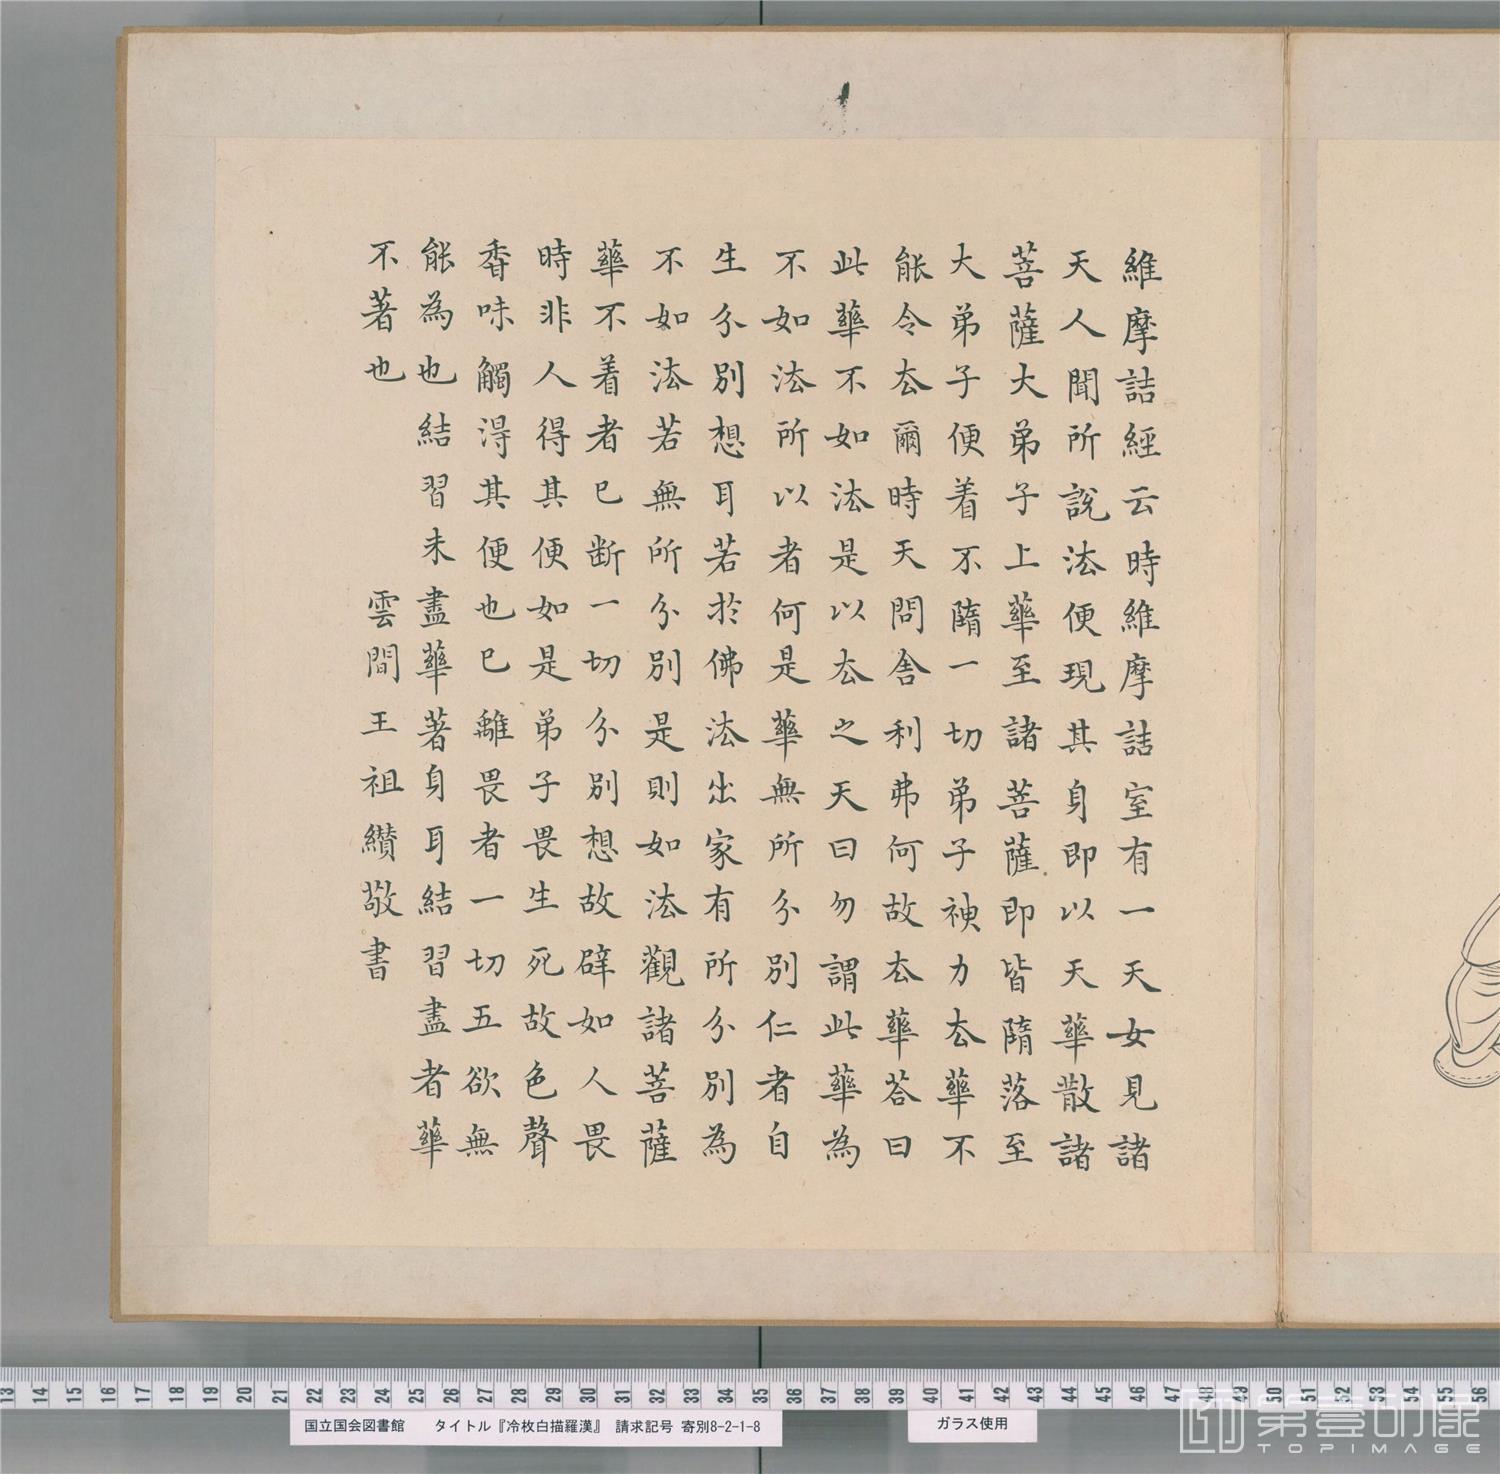 維摩詰經云時維摩詰室有一天女見諸
天人聞所說法便現其身即以天華散諸
菩薩大弟子上華至諸菩薩即皆隋落至
大弟子便着不隋一切弟子神力去華不
能令去爾時天問舍利弗何故去華答曰
此華不如法是以去之天曰勿謂此華為
不如法所以者何是華無所分別仁者自
生分別想耳若於佛法出家有所分別為
不如法若無所分別是則如法觀諸菩薩
華不着者已断一切分別想故辟如人畏
時非人得其便如是弟子畏生死故色聲
香味觸得其便也已離畏者一切五欲無
能為也結習未盡華著身耳結習盡者華
不著也 雲間王祖纘敬書
13 14 15 16 17 18 19 20 21 22 23 24 25 26 27 28 29 30 31 32 33 34 35 36 37 38 39 40 41 42 43 44 45 46 47 48 49 50 51 52 53 54 55 56
国立国会図書館 タイトル『冷枚白描羅漢』 請求記号 寄別8-2-1-8
ガラス使用
第壹印像
TOPIMAGE